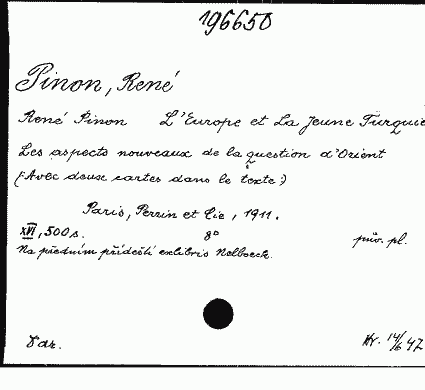 196650
Pinon, René
René Pinon L'Europe et La Jeune Turquie
Les aspects nouveaux de la question d'Orient
(:Avec deux cartes dans le texte:)
Paris, Perrin et Cie, 1911.
XVI, 500 s. 8° pův. pl.
Na předním přídeští exlibris
Dar. Hr. 14/6 47